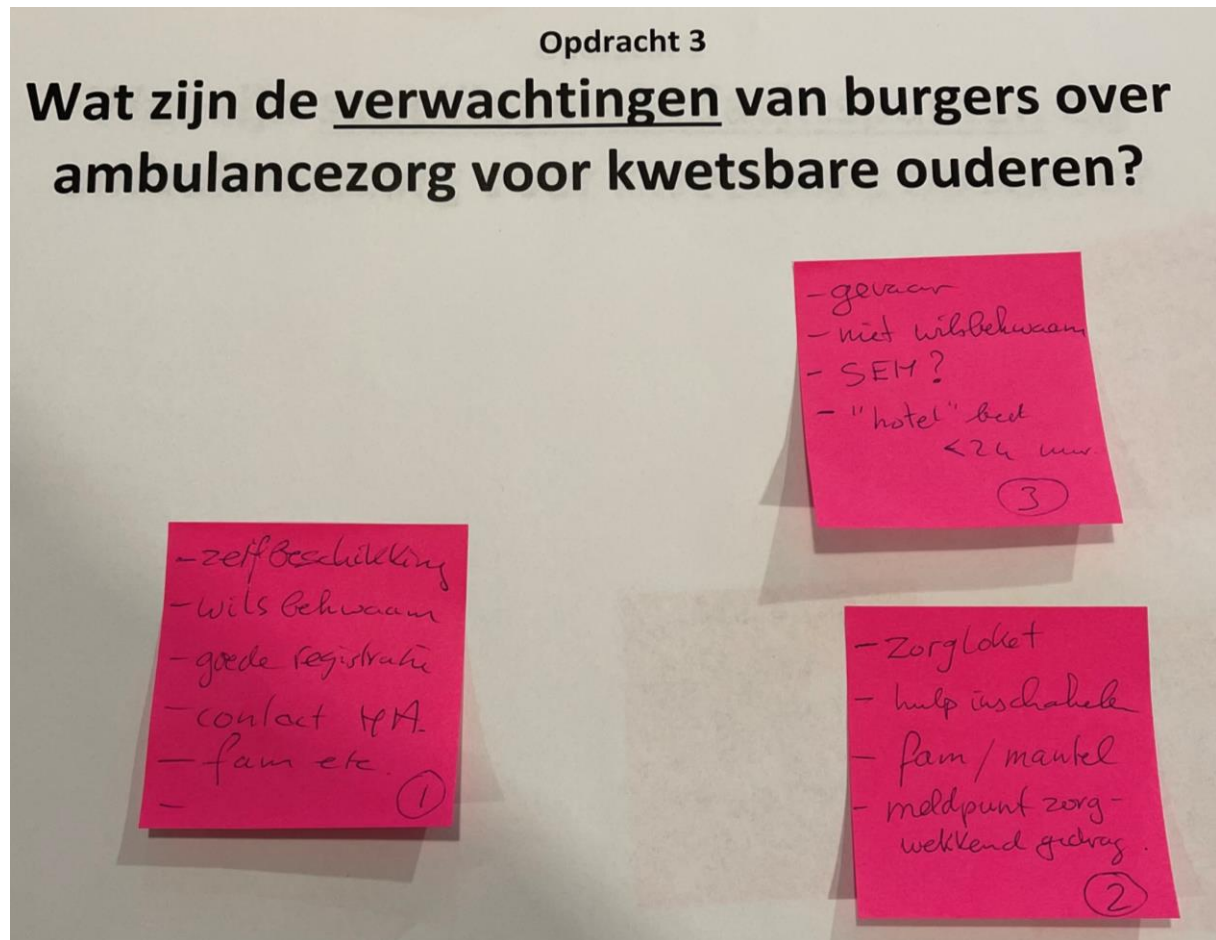 Opdracht 3
Wat zijn de verwachtingen van burgers over
ambulancezorg voor kwetsbare ouderen?
- gevaar
- niet wilsbekwaam
- SEH?
- "hotel" bed
<24 uur.
3
- zelfbeschikking
- wilsbekwaam
- goede registratie
- contact HA.
- fam etc.
-
1
- zorgloket
- hulp inschakelen
- fam / mantel
- meldpunt zorg-
wekkend gedrag.
2